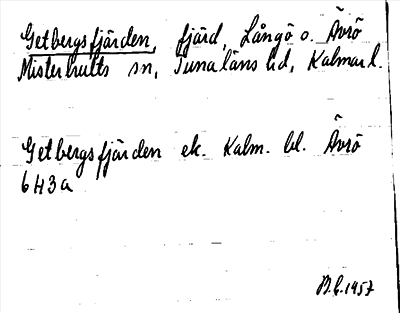 Getbergsfjärden, fjärd, Långö o. Ävrö
Misterhults sn, Tunaläns hd, Kalmar l.
Getbergsfjärden ek. Kalm. bl. Ävrö
6H3a
1957